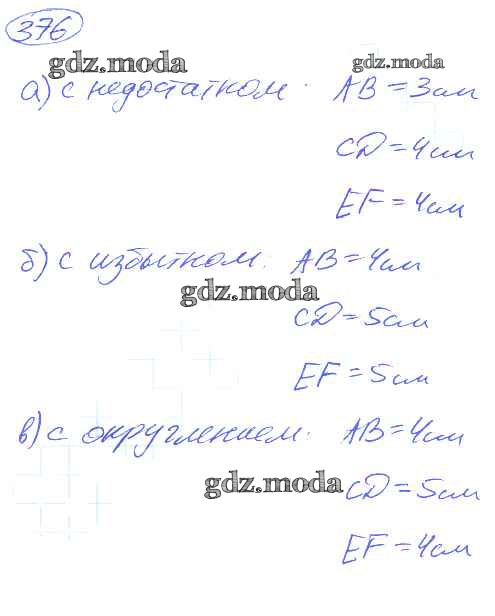 376
gdz.moda gdz.moda
а) с недостатком: AB = 3 см
CD = 4 см
EF = 4 см
б) с избытком: AB = 4 см
gdz.moda
CD = 5 см
EF = 5 см
в) с округлением: AB = 4 см
gdz.moda CD = 5 см
EF = 4 см